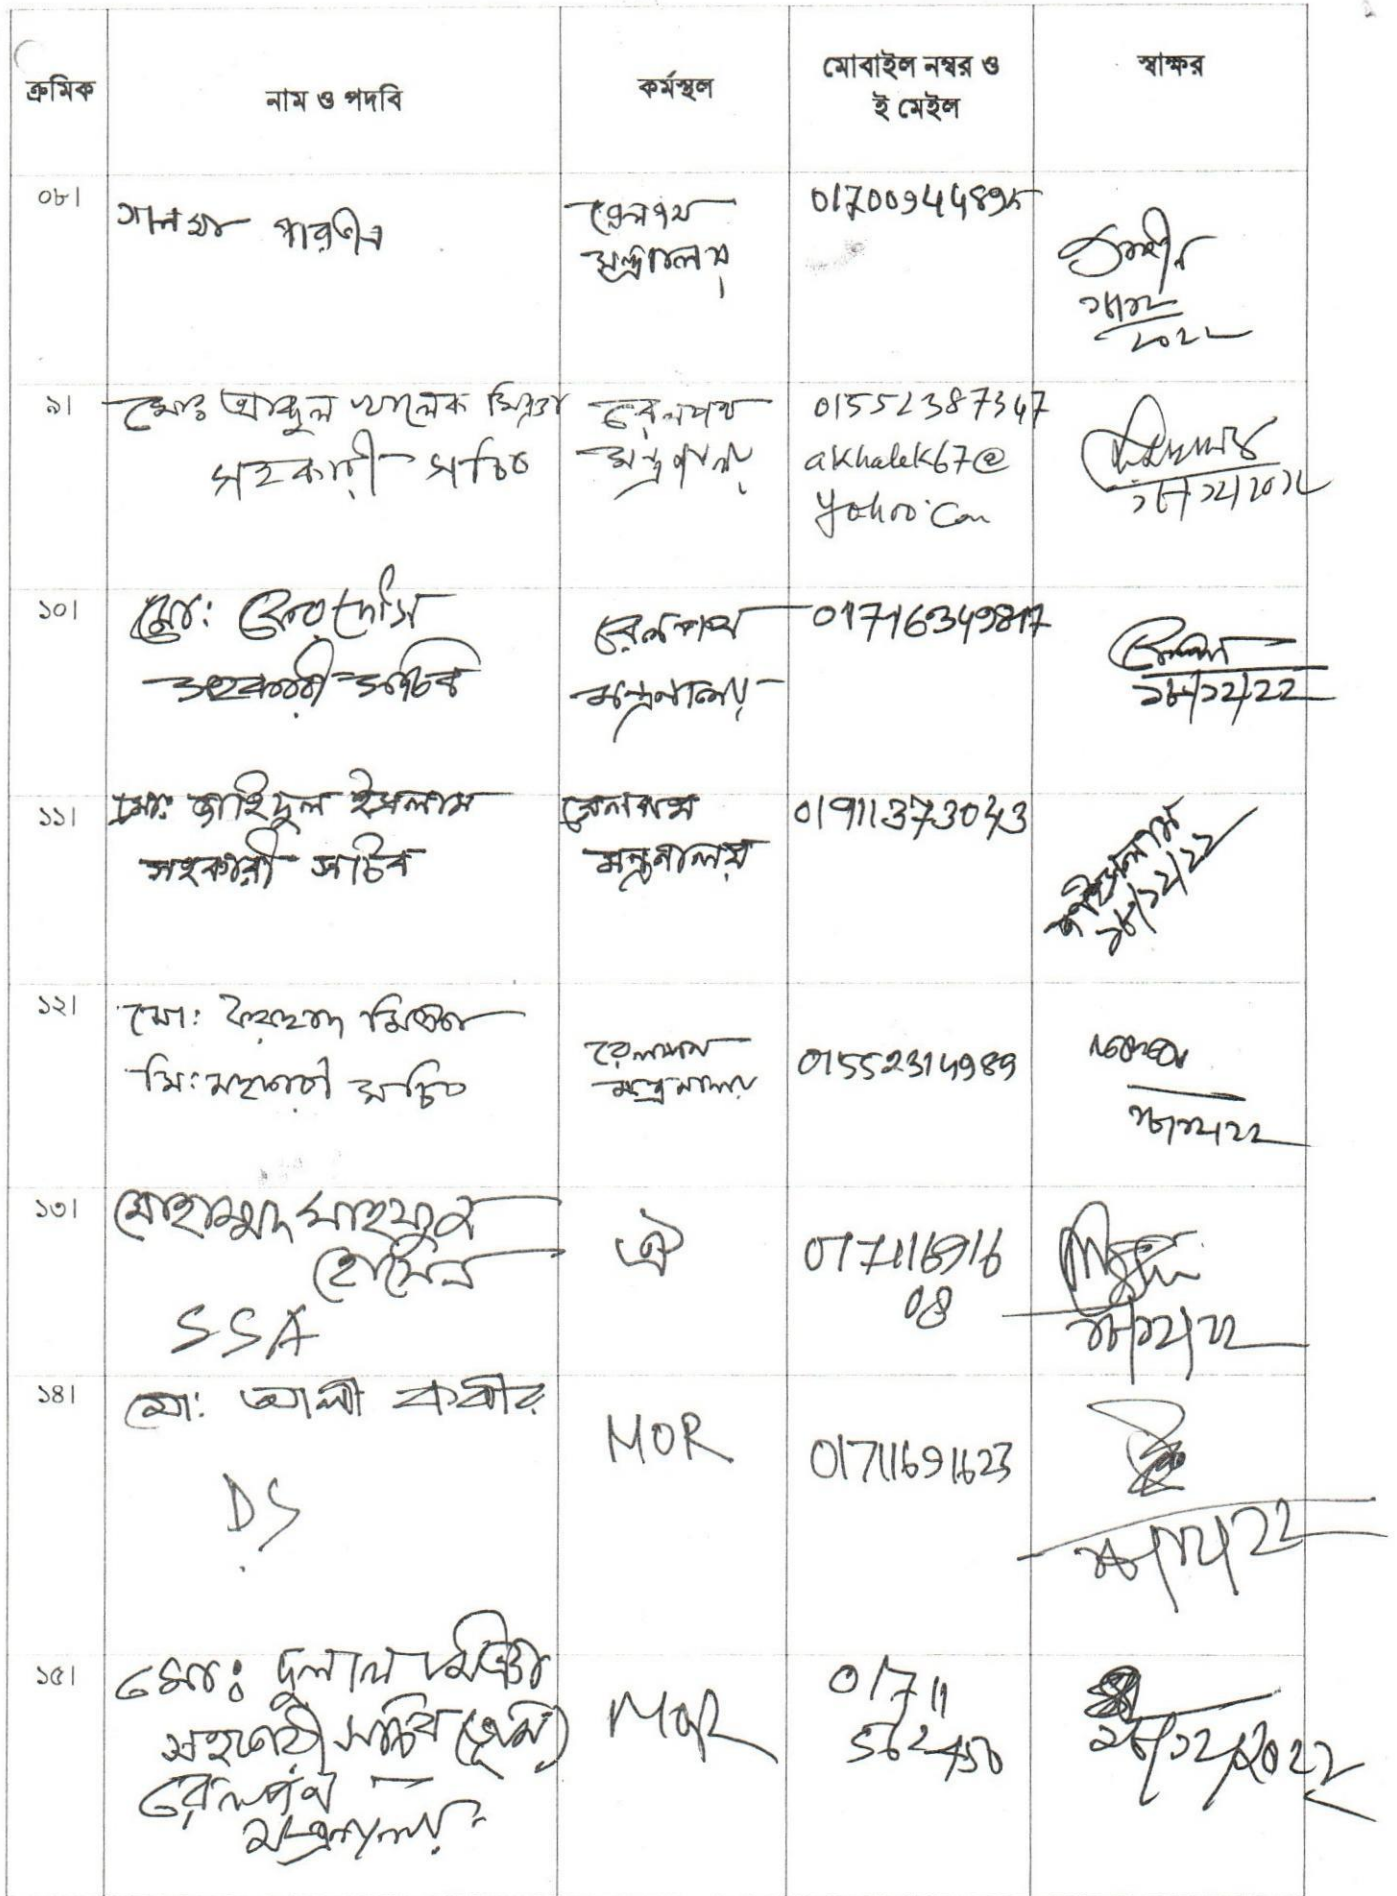 ক্রমিক
নাম ও পদবি
কর্মস্থল
মোবাইল নম্বর ও
ই মেইল
স্বাক্ষর
০৮।
সালমা পারভীন
রেলপথ
মন্ত্রণালয়
২০২২
৯।
মোঃ আব্দুল খালেক মিঞা
সহকারী সচিব
রেলপথ
মন্ত্রণালয়
01552387347
akhalek67@
yahoo.com
২৮/১২/২০২২
১০।
মো: ফেরদৌস
সহকারী সচিব
রেলপথ
মন্ত্রণালয়
২৮/১২/২২
১১।
মো: জাহিদুল ইসলাম
সহকারী সচিব
রেলপথ
মন্ত্রনালয়
01911373043
২৮/১২/২২
১২।
মো: ফরহাদ মিঞা
সি: সহকারী সচিব
রেলপথ
মন্ত্রনালয়
01552314989
২৮/১২/২২
১৩।
মোহাম্মদ
হোসেন
SSA
ঐ
017116916
08
২৮/১২/২২
১৪।
মো: আলী কবীর
DS
MOR
01711691623
২৮/১২/২২
১৫।
মোঃ দুলাল মিঞা
সহকারী সচিব (ভূমি)
রেলপথ
মন্ত্রনালয়
MOR
01711
562450
২৮/১২/২০২২